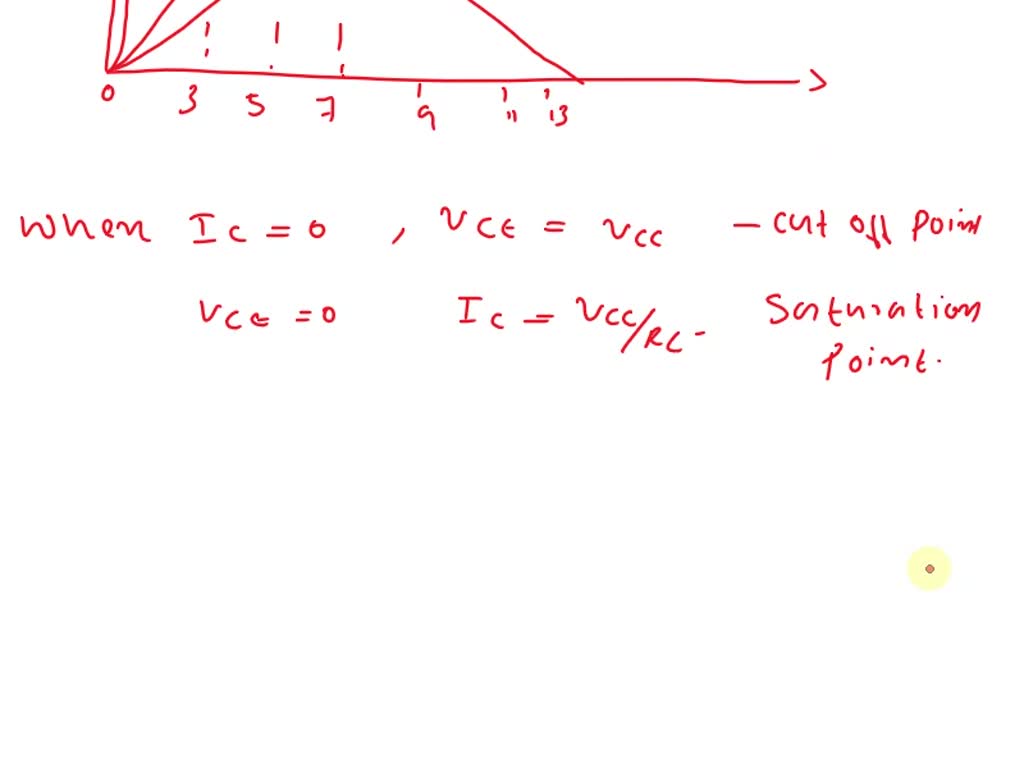 0 3 5 7 9 11 13
When Ic = 0 , VCE = VCC – Cut off Point
VCE = 0 IC = VCC/RC - Saturation
Point.